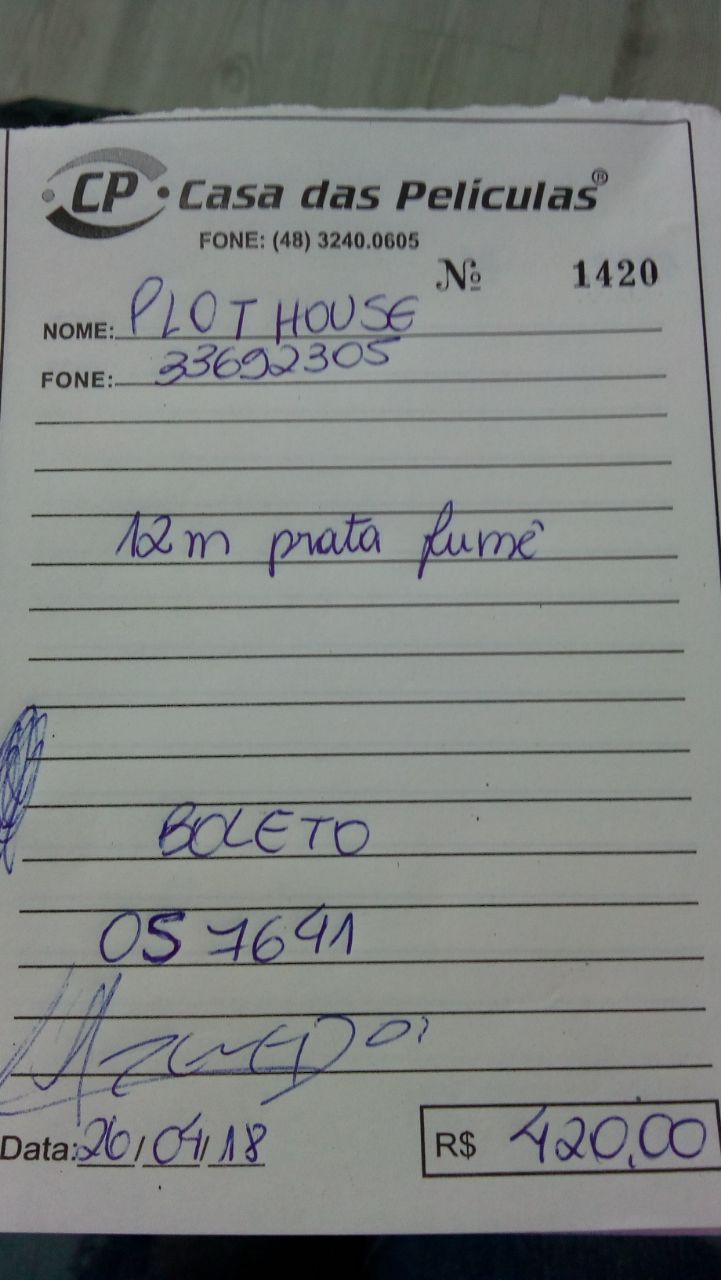 CP Casa das Películas®
FONE: (48) 3240.0605
Nº 1420
NOME: PLOT HOUSE
FONE: 33692305
12m prata fumê
BOLETO
OS 7641
Data: 26/04/18 R$ 420,00